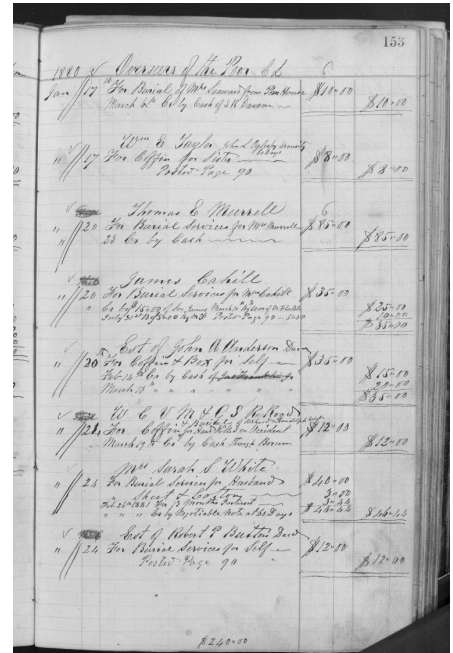 153
1880 Overseers of the Poor C L
Jan 17 For Burial of Mrs Seaward from Poor House $10=00
March 6th Cr by Cash of S R $10=00
Wm E Taylor John L security
" 17 For Coffin for Sister $8=00
Posted Page 90 $8=00
Thomas E Murrell
" 20 For Burial Services for Mrs Murrell $85=00
23 Cr by Cash $85=00
James Cahill
" 20 For Burial Services for Mrs Cahill $35=00
Cr by $25=00
Posted Page 90 10=00
$35=00
Est of John A Anderson Decd
" 20 For Coffin & Box for Self $35=00
Feb 24th Cr by Cash of $15=00
March 18th " " " " 20=00
$35=00
W C V M & G S R Road
" 21 For Coffin & for Hand Killed on Accident $12=00
March 19th Cr by Cash $12=00
Mrs Sarah S White
" 24 For Burial Services for Husband $40=00
3=00
Feb 24th 1881 For 13 Months Interest 3=44
" " " Cr by Negotiable Note at 60 Days $46=44 $46=44
Est of Robert P Burton Decd
" 24 For Burial Services for Self $12=00
Posted Page 90 $12=00
$240=00